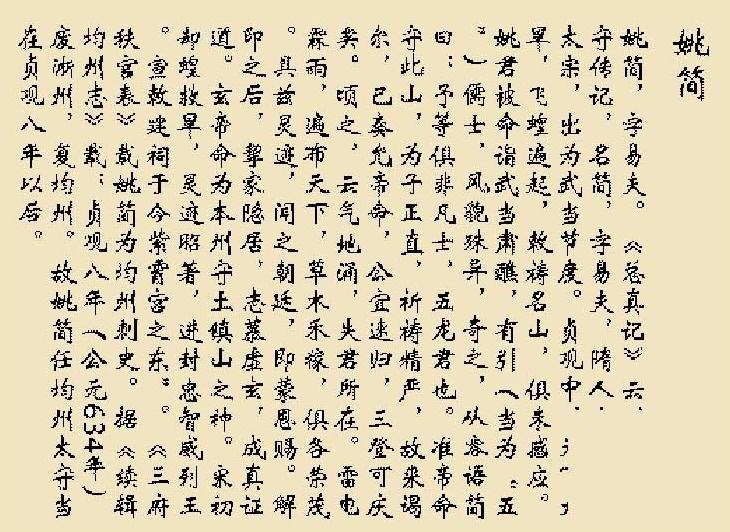 姚简
姚简，字易夫。《总真记》云
守传记，名简，字易夫，隋人
太宗，出为武当节度。贞观中
旱，飞蝗遍起，敕祷名山，俱未感应。
姚君被命诣武当肃醮，有引（当为“五
”）儒士，风貌殊异，奇之，从容语简
曰：予等俱非凡士，五龙君也。准帝命
守此山，为子正直，祈祷精严，故来谒
尔，已奏允帝命，公宜速归，三登可庆
矣。顷之，云气地涌，失君所在。雷电
霖雨，遍布天下，草木禾稼，俱各荣茂
。具兹灵迹，闻之朝廷，即蒙恩赐。解
印之后，挈家隐居，志慕虚玄，成真证
道。玄帝命为本州守土镇山之神。宋初
却蝗救旱，灵迹昭著，进封忠智威烈王
。宣敕建祠于今紫霄宫之东”。《三府
秩官表》载姚简为均州刺史。据《续辑
均州志》载：贞观八年（公元634年）
废淅州，复均州。故姚简任均州太守当
在贞观八年以后。